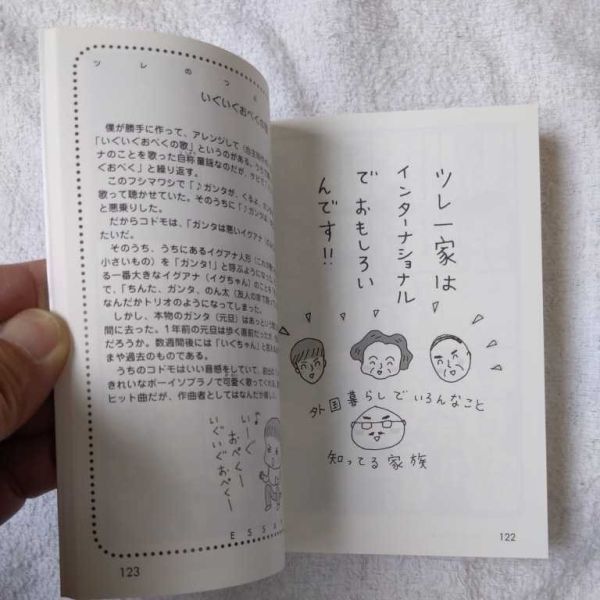 ツレ一家は
インターナショナル
で おもしろい
んです!!
外国暮らしで いろんなこと
知ってる家族
122
ツレのつ
いぐいぐおぺくの
僕が勝手に作って、アレンジして
「いぐいぐおぺくの歌」というのがある。
ナのことを歌った自称童話なのだが、
ぐおぺく」と繰り返す。
このフシマワシで「♪ガンタが、くるよ、
歌って聴かせていた。そのうちに「♪ガンタは、
と悪乗りした。
だからコドモは、「ガンタは悪いイグアナ
たいだ。
そのうち、うちにあるイグアナ人形
小さいもの)を「ガンタ!」と呼ぶようになっ
る一番大きなイグアナ(イグちゃん)のこと
で、「ちんた、ガンタ、のん太(友人の
なんだかトリオのようになってしまった。
しかし、本物のガンタ(元旦)はあっという
間に去った。1年前の元旦は歩く直前だった
だろうか。数週間後には「いぐちゃん」と
まや過去のものである。
うちのコドモはいい音感をしていて、
きれいなボーイソプラノで可愛く歌ってくれる。
ヒット曲だが、作曲者としてはなんだか
♪
いーぐ
おぺくー
いぐいぐおぺくー
ESSA
123